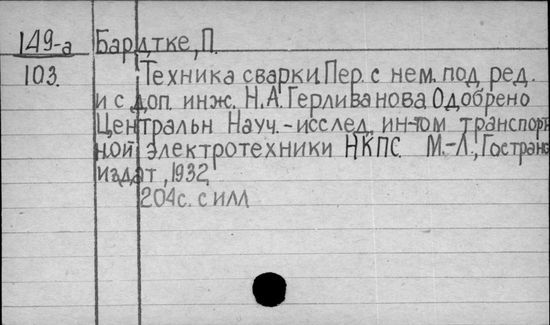 149-а Бардтке, П.
103. Техника сварки. Пер. с нем. под ред.
и с доп. инж. Н.А. Герливанова. Одобрено
Центральн Науч.-исслед. ин-том транспорт
ной электротехники НКПС. М.-Л., Гостранс
издат, 1932
204с. с илл